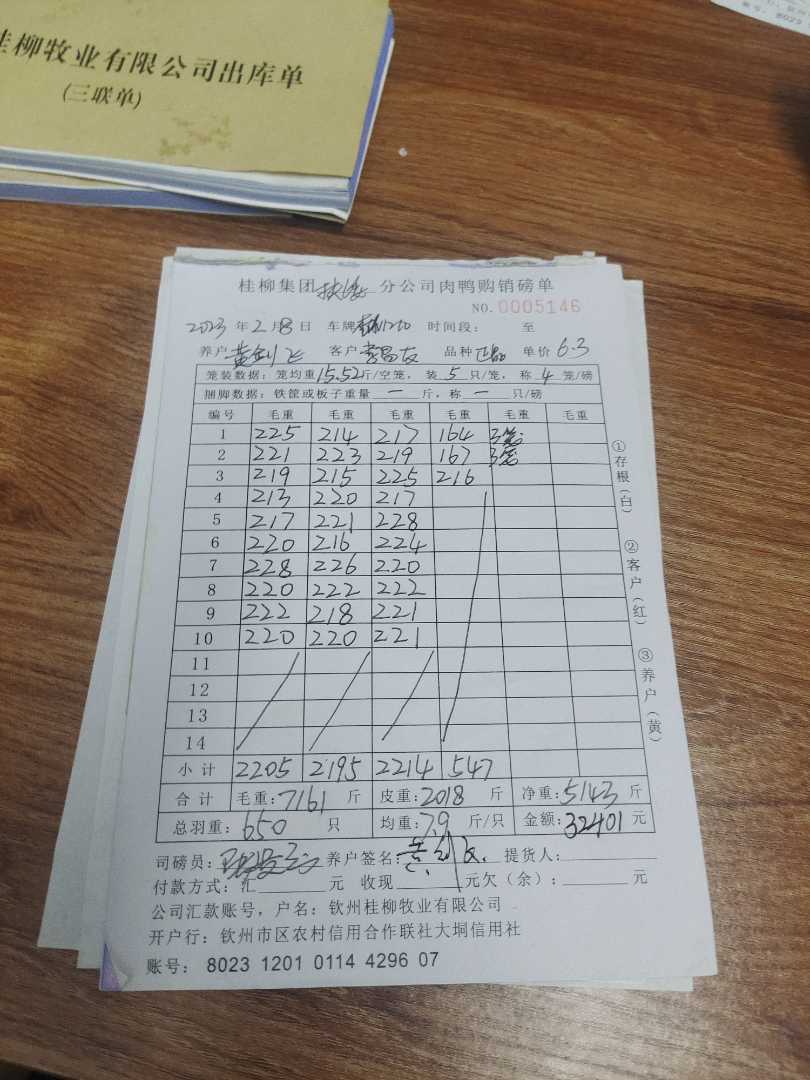 桂柳牧业有限公司出库单
(三联单)
8023
桂柳集团 分公司肉鸭购销磅单
NO.0005146
2023 年 2 月 8 日 车牌 时间段： 至
养户 黄剑飞 客户 李昌友 品种 正品 单价 6.3
笼装数据：笼均重15.52斤/空笼，装 5 只/笼，称 4 笼/磅
捆脚数据：铁筐或板子重量 一 斤，称 一 只/磅
编号 毛重 毛重 毛重 毛重 毛重 毛重
1 225 214 217 164 3笼
2 221 223 219 167 3笼
3 219 215 225 216
4 213 220 217
5 217 221 228
6 220 216 224
7 228 226 220
8 220 222 222
9 222 218 221
10 220 220 221
11
12
13
14
小计 2205 2195 2214 547
合计 毛重：7161 斤 皮重：2018 斤 净重：5143 斤
总羽重：650 只 均重：7.9 斤/只 金额：32401 元
司磅员： 养户签名： 提货人：
付款方式：汇 元 收现 元欠（余）： 元
公司汇款账号，户名：钦州桂柳牧业有限公司
开户行：钦州市区农村信用合作联社大垌信用社
账号： 8023 1201 0114 4296 07
①存根（白）
②客户（红）
③养户（黄）